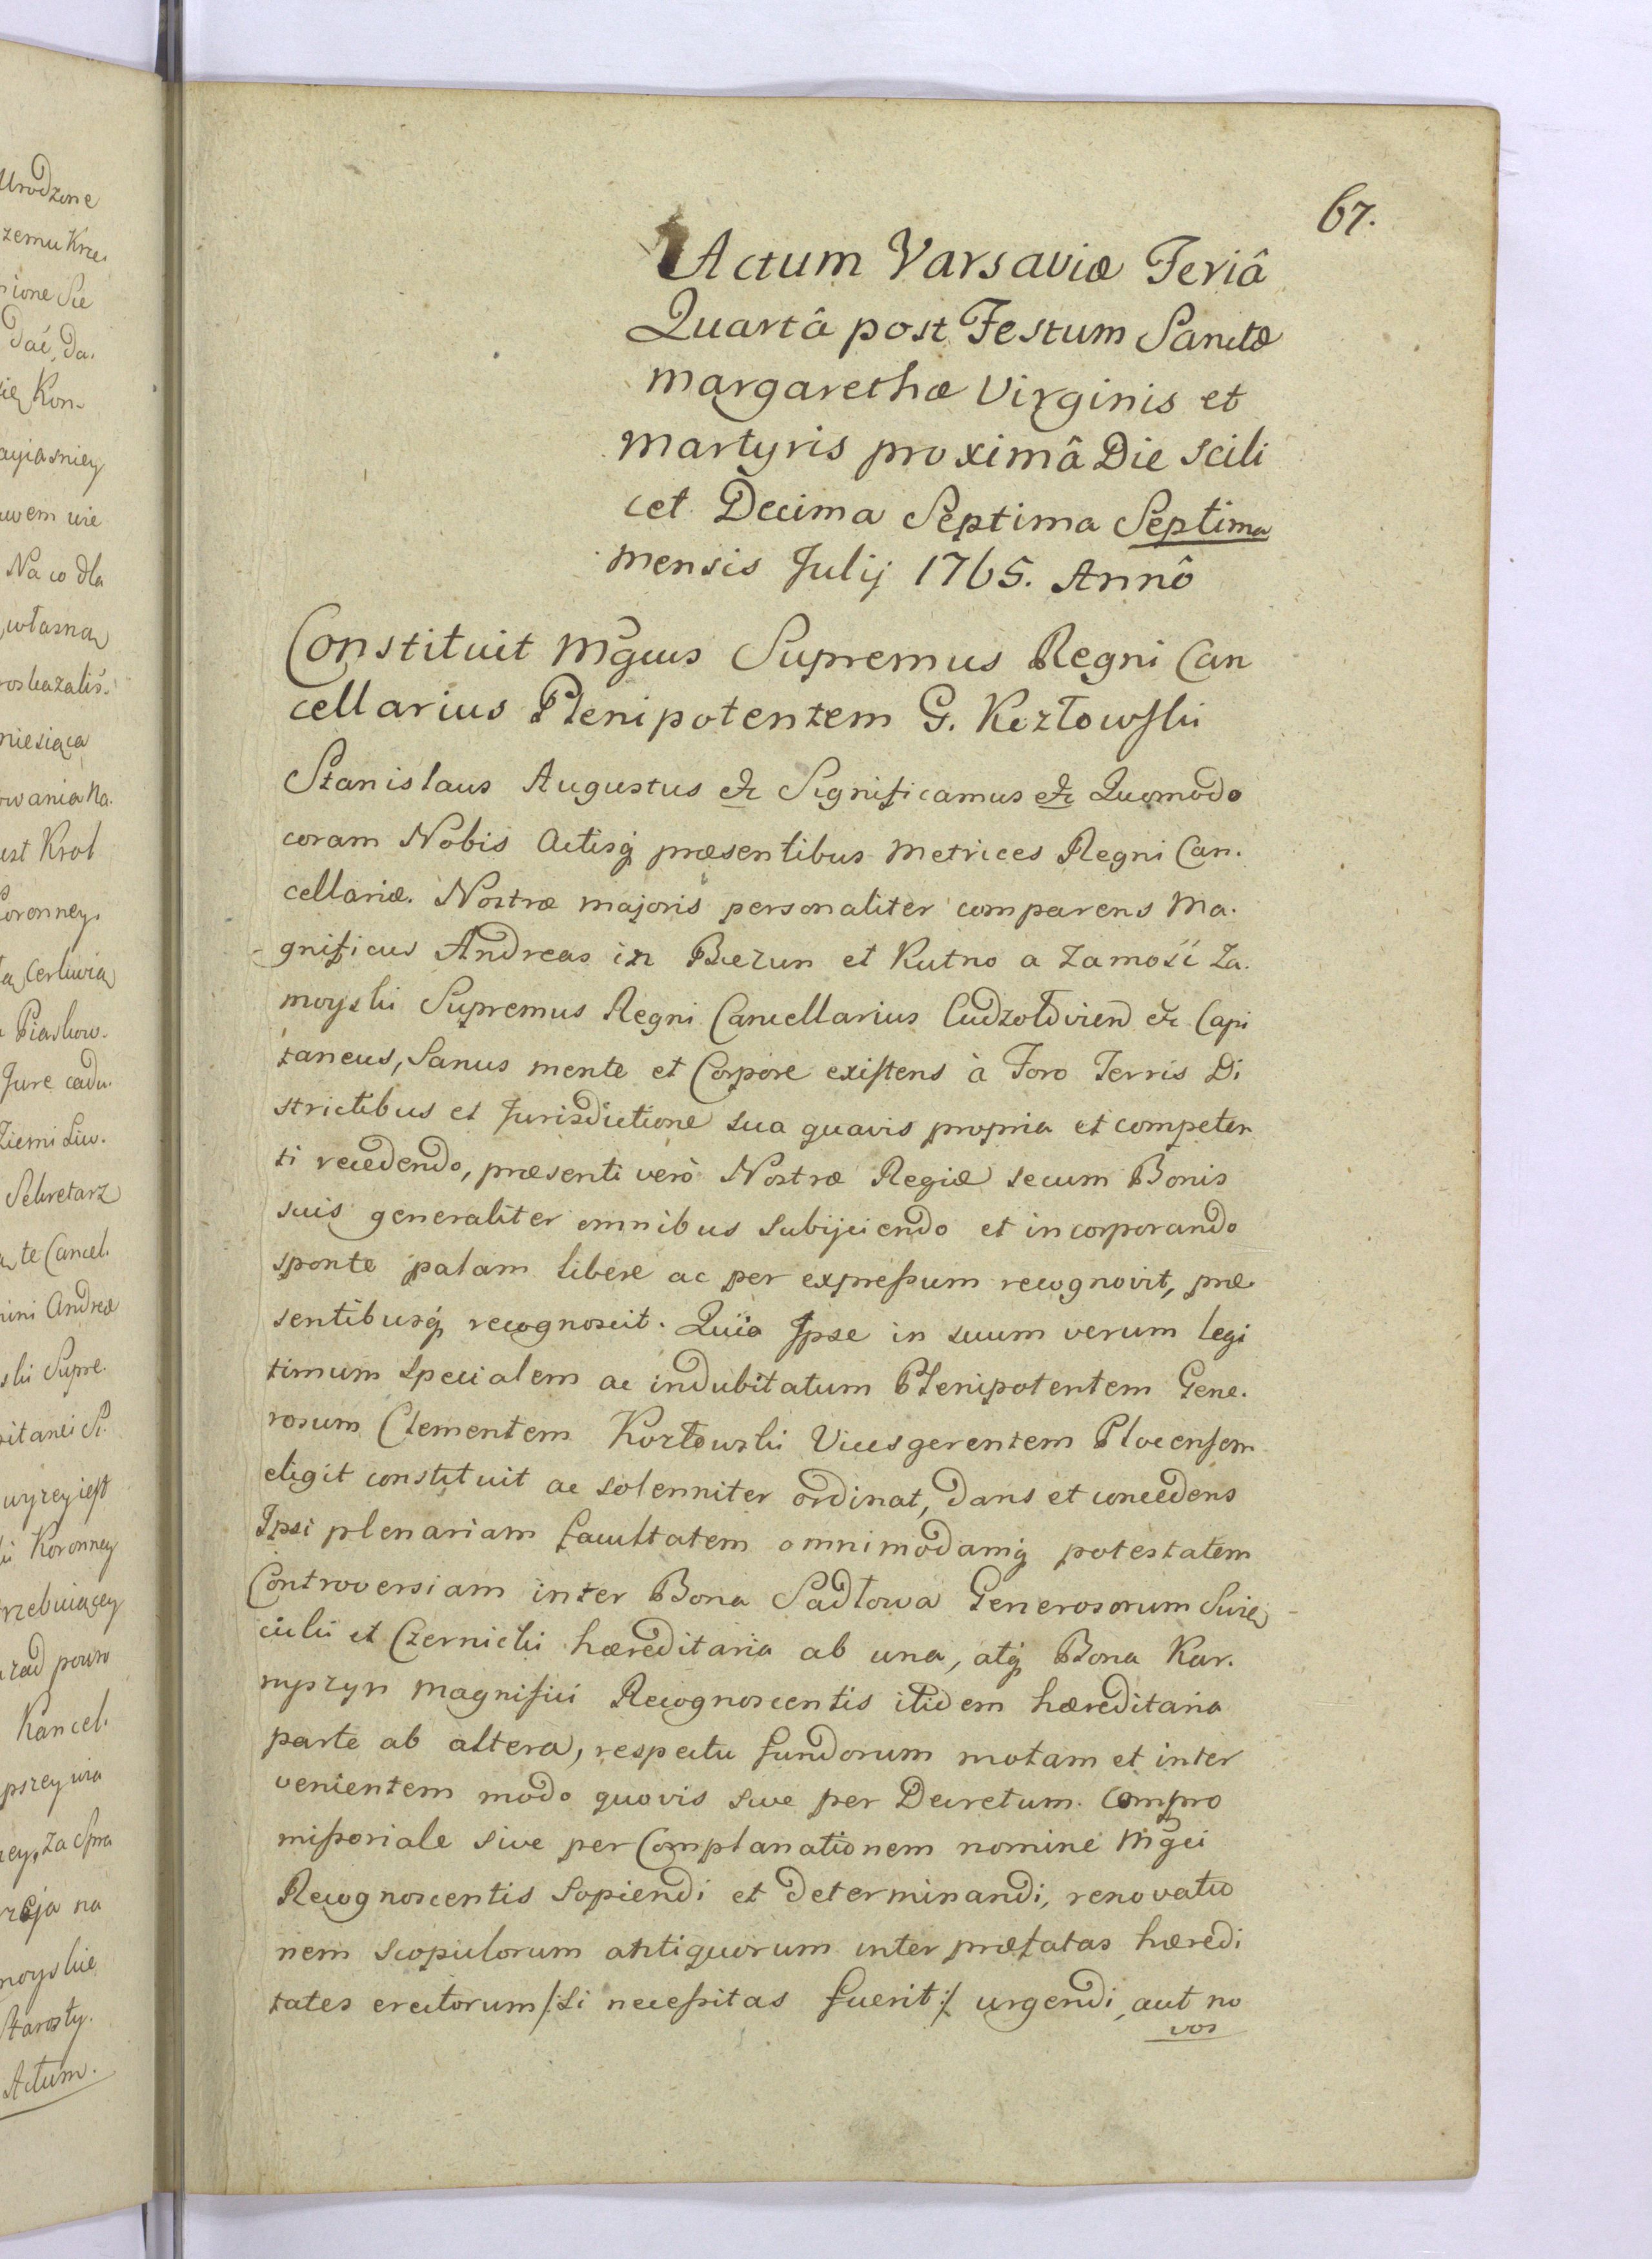 Urodzone
zemu Krze.
nione Sie
dać, da.
się Kon-
ayiasniey
uwem wie
Na co dla
własną
roskazaliś.
miesiąca
owania na.
ust Krol
Koronney.
ta Cerkwią
Piaskow.
Jure cadu.
Ziemi Liw.
Sekretarz
te Cancel.
mini Andreæ
ski Supre.
pitanei S.
wyzey iest
ki Koronney
rzebuiącey
rząd powin
Kancel.
pszeywa
ey, za Spra
rcja na
moyskie
Starosty.
Actum.
67.
Actum Varsaviæ Feriâ
Quartâ post Festum Sanctæ
Margarethæ Virginis et
Martyris proximâ Die scili
cet Decima Septima Septima
Mensis Julij 1765. Annô
Constituit Mgcus Supremus Regni Can
cellarius Plenipotentem G. Kozłowski
Stanislaus Augustus &c Significamus &c Quomodo
coram Nobis Actisq̨ præsentibus Metrices Regni Can.
cellariæ. Nostræ majoris personaliter comparens Ma.
gnificus Andreas in Biezun et Kutno a Zamość Za.
moyski Supremus Regni Cancellarius Ludzoldvien &c Capi
taneus, Sanus mente et Corpore existens à Foro Terris Di
strictibus et Jurisdictione sua quavis propria et competen
ti recedendo, præsenti verò Nostræ Regiæ secum Bonis
suis generaliter omnibus subijciendo et incorporando
sponte palam libere ac per expressum recognovit, præ
sentibusq̨ recognoscit. Quia Ipse in suum verum legi
timum Specialem ac indubitatum Plenipotentem Gene.
rosum Clementem Kozłowski Vicesgerentem Plocensem
eligit constituit ac solenniter ordinat, dans et concedens
Ipsi plenariam facultatem omnimodamq̨ potestatem
Controversiam inter Bona Sadłowa Generosorum Swię
cicki et Czernicki hæreditaria ab una, atq̨ Bona Kar.
nyszyn Magnifici Recognoscentis itidem hæreditaria
parte ab altera, respectu fundorum motam et inter
venientem modo quovis sive per Decretum Compro
missoriale sive per Complanationem nomine Mgci
Recognoscentis sopiendi et determinandi, renovatio
nem scopulorum antiquorum inter præfatas hæredi
tates erectorum /:si necessitas fuerit:/ urgendi, aut no
vos